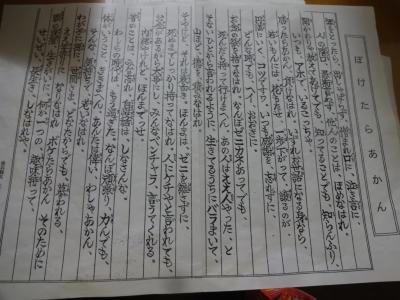 ぼけたらあかん
年をとったら 出しゃばらず、憎まれ口に、泣き言に、
人のかげ口、愚痴言わず、他人のことは、ほめなはれ。
聞かれりゃ教えてあげてでも、知ってることでも、知らんふり、
いつも、アホで、いるこっちゃ。
勝ったらあかん、負けなはれ、いずれお世話になる身なら、
若いもんには、花もたせ、一歩さがって、譲るのが、
円満にいく、コツですわ。いつも感謝を、忘れずに、
どんな時でも、へえ、おおきに。
お金の欲を、捨てなはれ、なんぼゼニカネあってでも、
死んだら持って行けまへん。あの人は、ええ人やった、と
ないから言われるように、生きてるうちに、バラまいて、
山ほど、徳を、積みなはれ。
そやけど、それは表向き。ほんまは、ゼニを、離さずに、
死ぬまでしっかり持ってなはれ。人にケチやと言われても、
お金があるから大事にし、みんな、ベンチャラ、言うてくれる。
内緒やけれど、ほんまでっせ。
昔のことは、みな忘れ、自慢話は、しなさんな。
わしらの時代は、もう過ぎた。なんぼ頑張り、力んでも、
体がいうこと、ききまへん。あんたは偉い、わしゃあかん、
そんな気持ちで、おりなはれ。
わが子に孫に、世間さま、どなたからでも、慕われる、
ええ年寄りに、なりなはれ。ボケたらあかん そのために
せいぜい、生き生き、しなはれや。